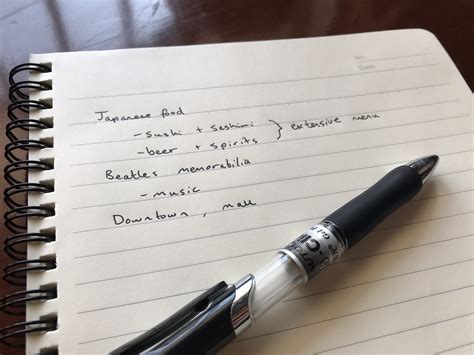 No.
Date
Japanese food
- sushi + sashimi
- beer + spirits } extensive menu
Beatles memorabilia
- music
Downtown, mall